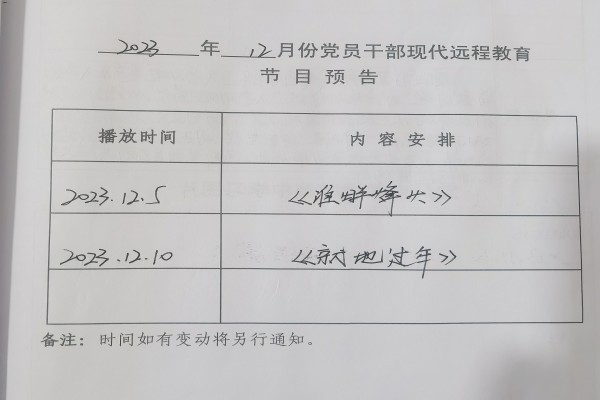 2023 年 12 月份党员干部现代远程教育
节目预告
播放时间 内容安排
2023.12.5 《淮畔烽火》
2023.12.10 《就地过年》
备注：时间如有变动将另行通知。